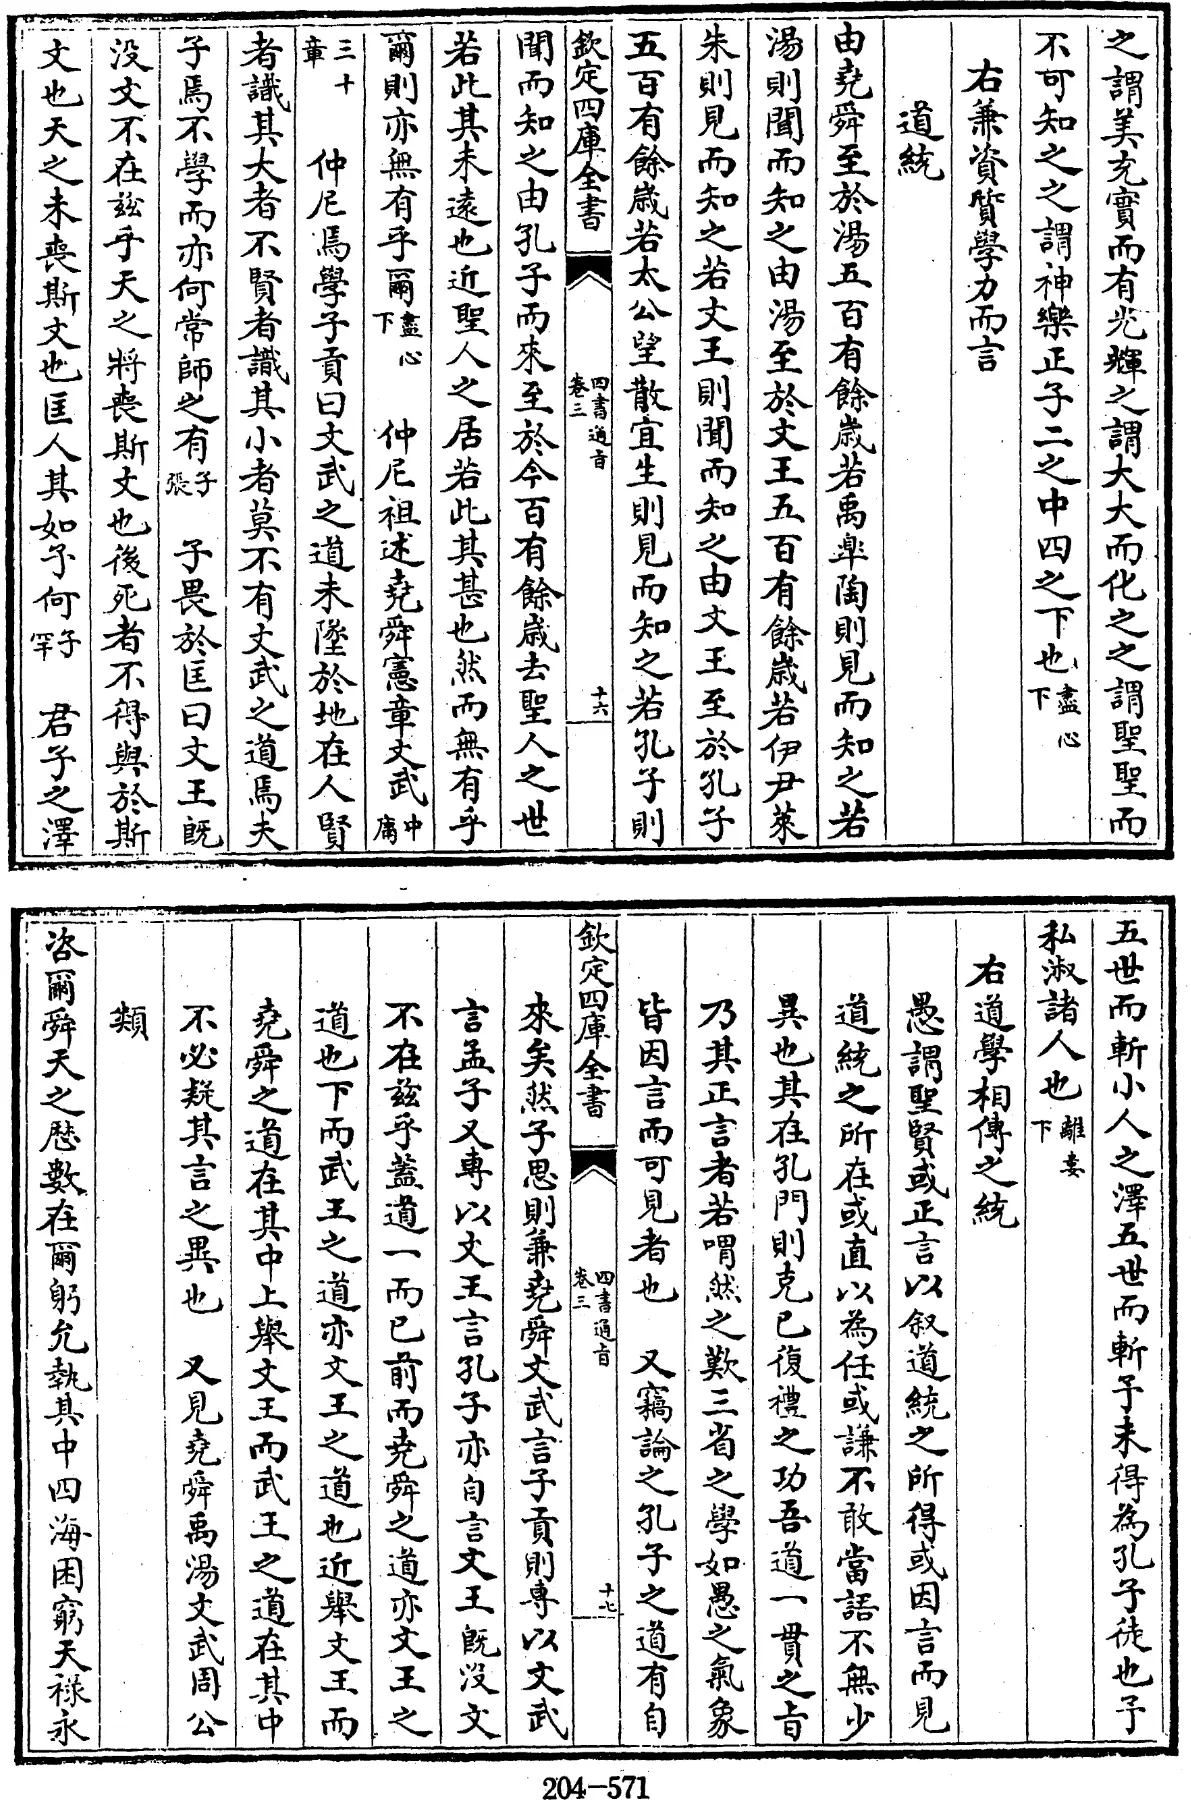 之謂美充實而有光輝之謂大大而化之之謂聖聖而
不可知之之謂神樂正子二之中四之下也盡心下
右兼資質學力而言
道統
由堯舜至於湯五百有餘歲若禹臯陶則見而知之若
湯則聞而知之由湯至於文王五百有餘歲若伊尹萊
朱則見而知之若文王則聞而知之由文王至於孔子
五百有餘歲若太公望散宜生則見而知之若孔子則
欽定四庫全書 四書通旨 卷三 十六
聞而知之由孔子而來至於今百有餘歲去聖人之世
若此其未遠也近聖人之居若此其甚也然而無有乎
爾則亦無有乎爾盡心下 仲尼祖述堯舜憲章文武中庸
三十章 仲尼焉學子貢曰文武之道未墜於地在人賢
者識其大者不賢者識其小者莫不有文武之道焉夫
子焉不學而亦何常師之有子張 子畏於匡曰文王既
没文不在兹乎天之將喪斯文也後死者不得與於斯
文也天之未喪斯文也匡人其如予何子罕 君子之澤
五世而斬小人之澤五世而斬予未得為孔子徒也予
私淑諸人也離婁下
右道學相傳之統
愚謂聖賢或正言以叙道統之所得或因言而見
道統之所在或直以為任或謙不敢當語不無少
異也其在孔門則克已復禮之功吾道一貫之旨
乃其正言者若喟然之歎三省之學如愚之氣象
皆因言而可見者也 又竊論之孔子之道有自
欽定四庫全書 四書通旨 卷三 十七
來矣然子思則兼堯舜文武言子貢則專以文武
言孟子又專以文王言孔子亦自言文王既没文
不在兹乎葢道一而已前而堯舜之道亦文王之
道也下而武王之道亦文王之道也近舉文王而
堯舜之道在其中上舉文王而武王之道在其中
不必疑其言之異也 又見堯舜禹湯文武周公
類
咨爾舜天之厯數在爾躬允執其中四海困窮天祿永
204-571